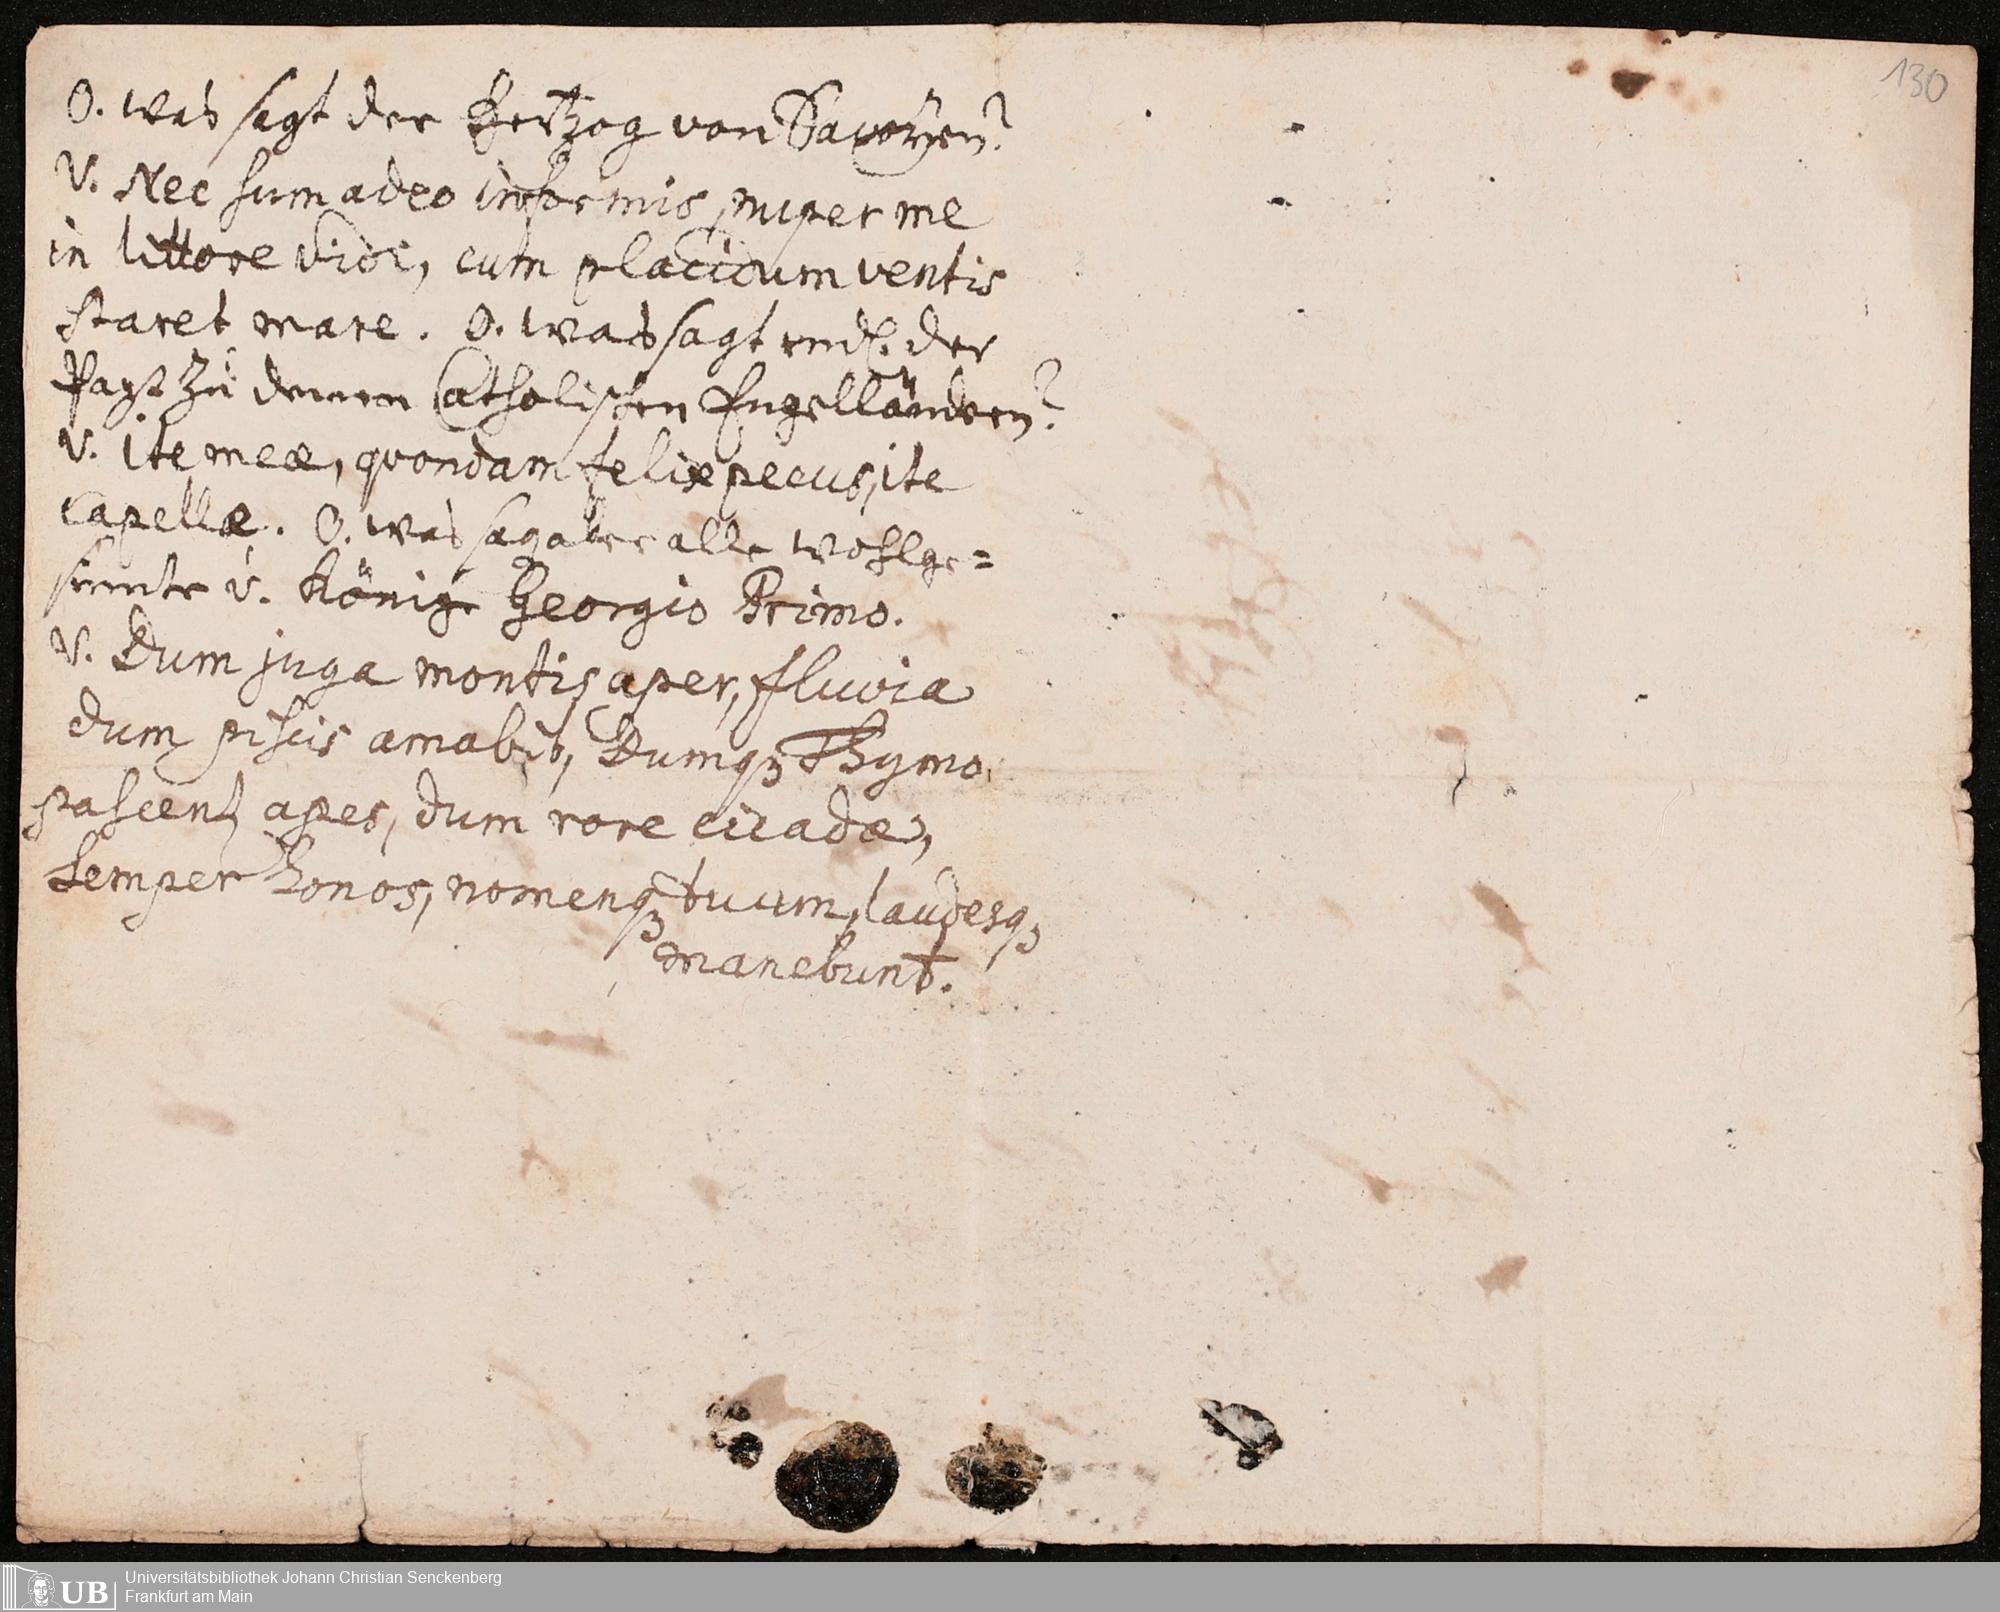 130
O. was sagt der Hertzog von Savoÿen?
V. Nec sum adeo informis, nuper me
in littore vidi, cum placidum ventis
staret mare. O. was sagt endl. der
Papst zu denen Catholischen Engelländern?
V. ite meæ, quondam felix pecus, ite
capellæ. O. was sag aber alle wohlge=
sinnte v. Könige Georgio Primo.
V. Dum juga montis aper, fluvia
dum piscis amabit, Dumqꝫ Thymo
pascent apes, dum rore cicadæ,
Semper honos, nomenqꝫ tuum, laudesqꝫ
manebunt.
UB
Universitätsbibliothek Johann Christian Senckenberg
Frankfurt am Main